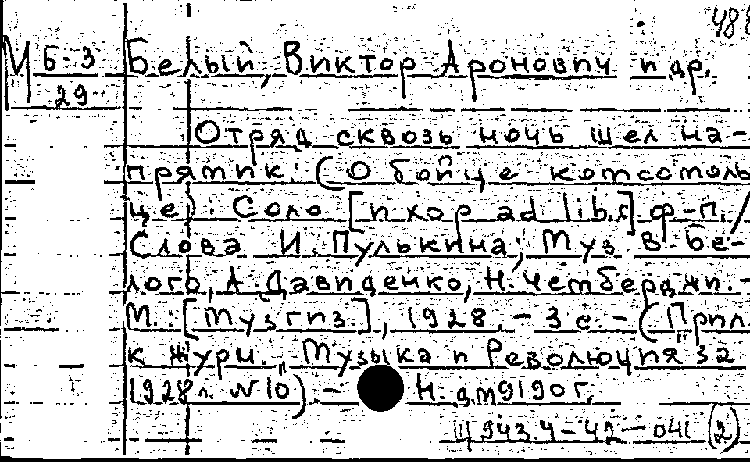 488
М Б-3
29
Белый, Виктор Аронович и др.
Отряд сквозь ночь шел на-
прямик: (О бойце комсомоль
це). Соло [и хор ad lib.] ф-п./
Слова И. Пулькина; Муз В. Бе-
лого, А. Давиденко, Н. Чемберджи. -
М.: [Музгиз], 1928. - 3 с. - (Прил
к журн. „Музыка и Революция за
1928г. №10). -
Н. дт9190г.
Ц 943.4-42-041 (2)